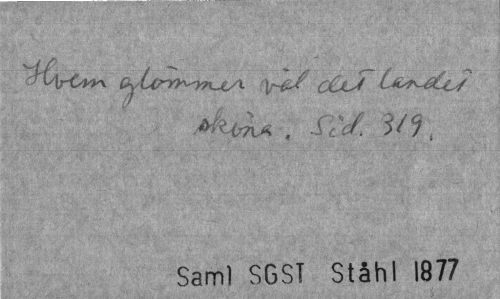 Hvem glömmer väl det landet
sköna. Sid. 319.
Saml SGST Ståhl 1877